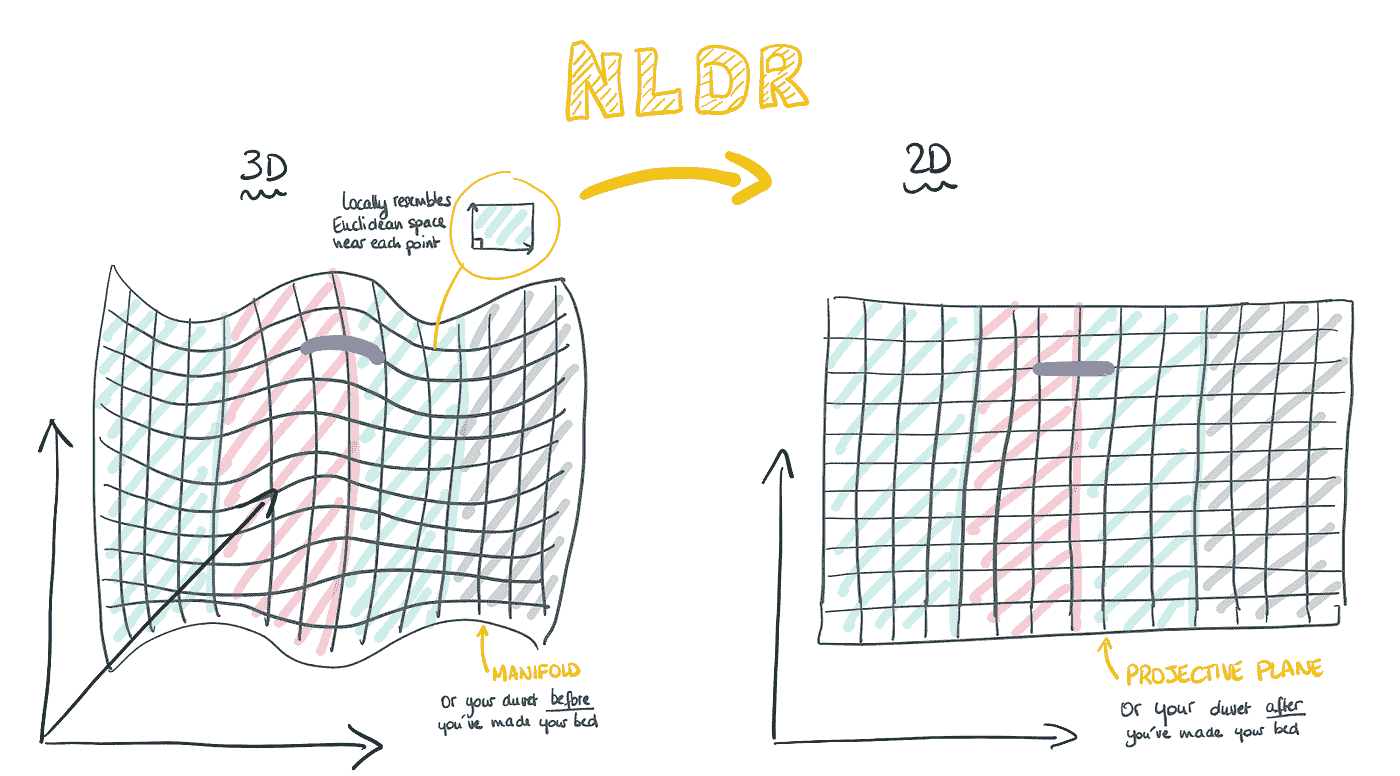 NLDR
3D
Locally resembles
Euclidean space
near each point
2D
MANIFOLD
Or your duvet before
you've made your bed
PROJECTIVE PLANE
Or your duvet after
you've made your bed